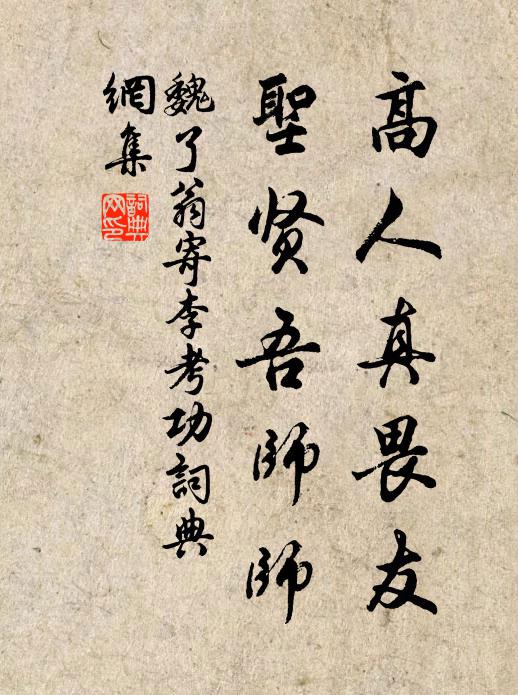 高人真畏友
聖贤吾師師
魏了翁寄李考功詞典
網集
詞典
网印